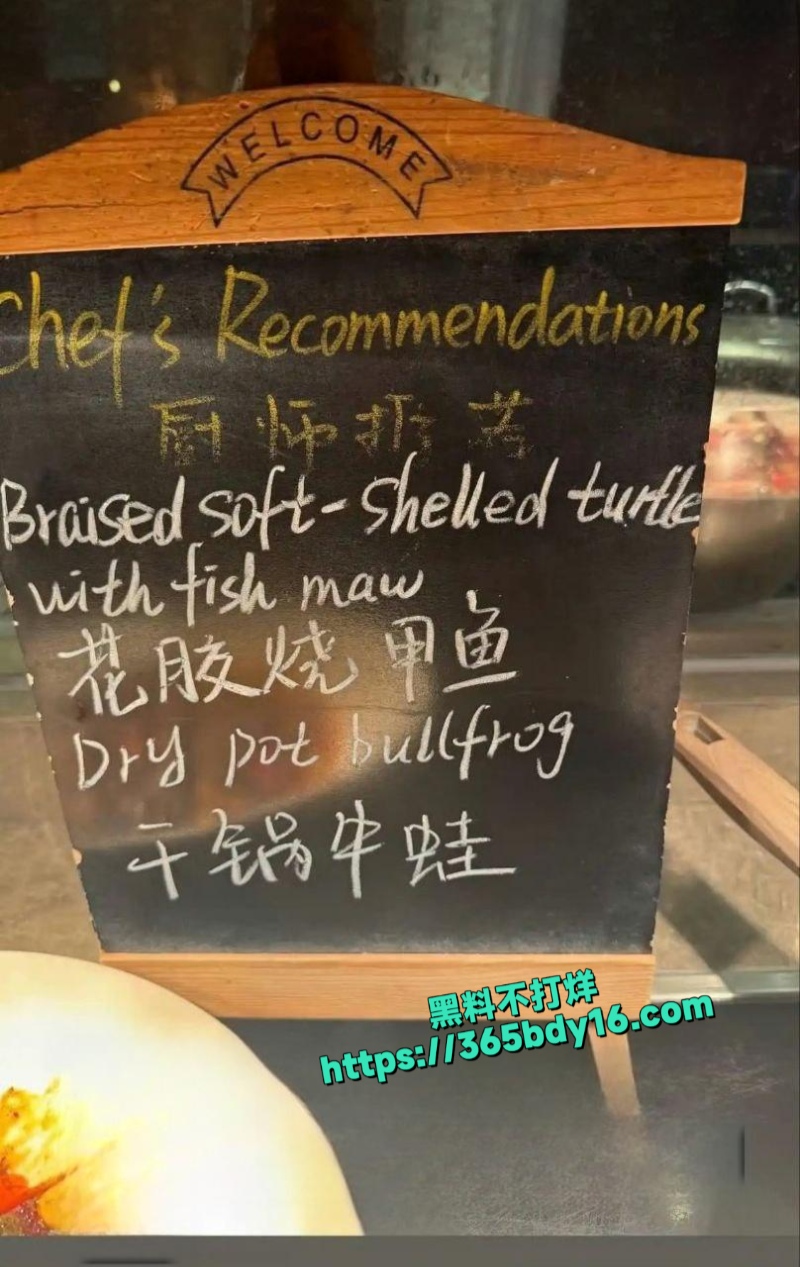 WELCOME
Chef's Recommendations
厨师推荐
Braised soft-shelled turtle
with fish maw
花胶烧甲鱼
Dry pot bullfrog
干锅牛蛙
黑料不打烊
https://365bdy16.com